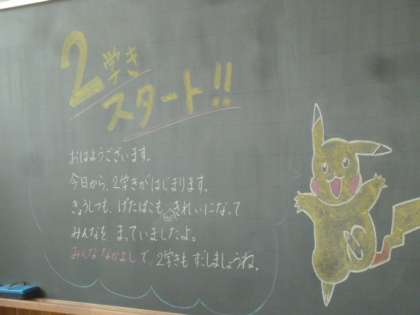 2学き
スタート!!
おはようございます。
今日から、2学きがはじまります。
きょうしつも、げたばこも、きれいになって
みんなを まっていましたよ。
みんななかよしで、2学きも すごしましょうね。